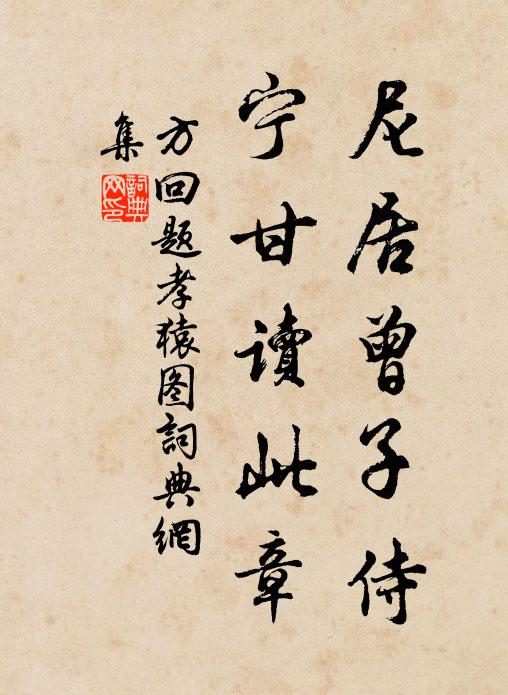 尼居曾子侍
宁甘读此章
方回题孝猿图词典网
集
詞典网印